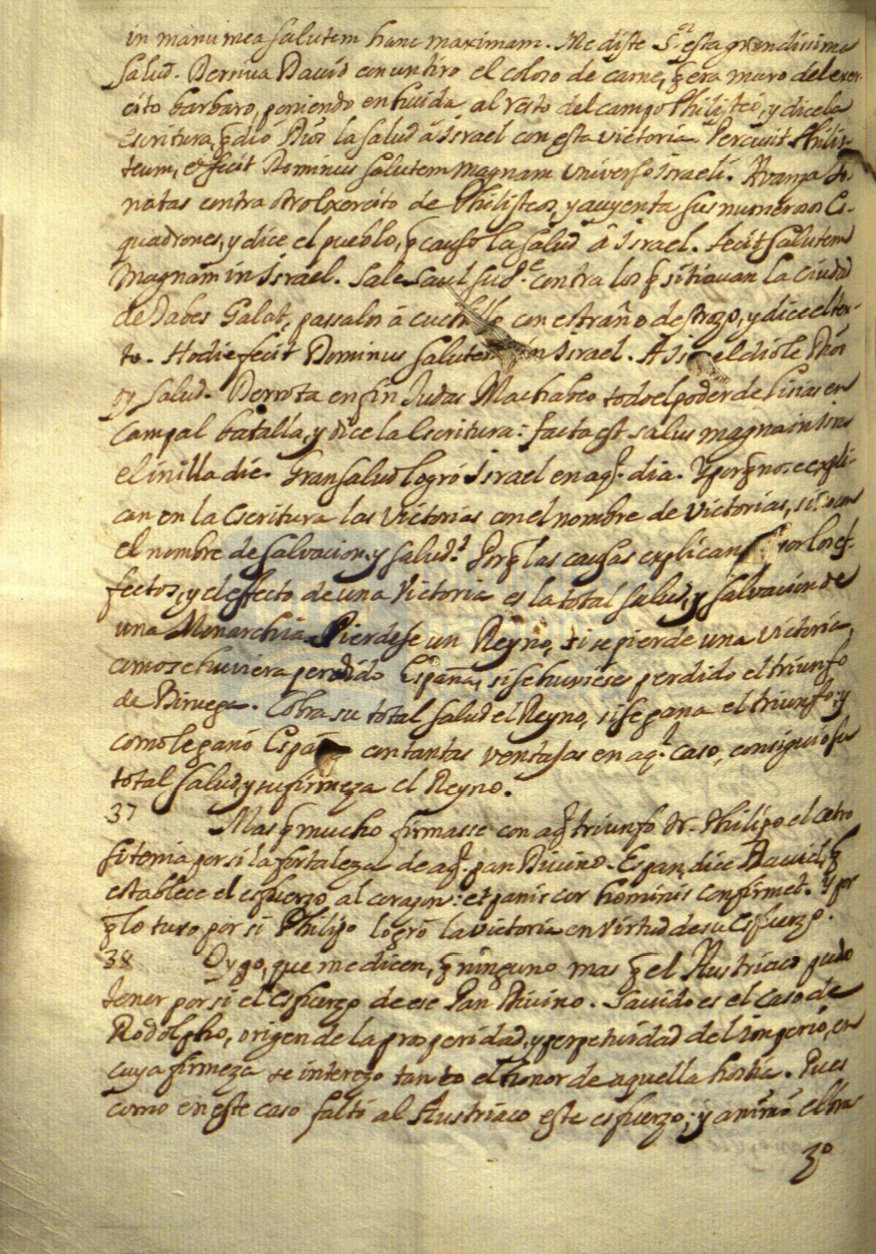 in manu mea salutem hanc maximam. Me diste S.or esta grandissima
salud. Derriua Dauid con un tiro el coloso de carne, q̃ era muro del exer-
cito barbaro, poniendo en huida al resto del campo Philisteo, y dice la
escritura, q̃ dio Dios la salud â Israel con esta victoria. Percusit Philis-
teum, et fecit Dominus salutem magnam universo Israeli. Avanza Jo-
natas contra otro exercito de Philisteos, y auyenta sus numerosos Es-
quadrones, y dice el pueblo, q̃ causo la salud â Israel. fecit salutem
magnam in Israel. Sale Saul contra los q̃ sitiauan la ciudad
de Jabes Galat, passalos â cuchillo con estraño destrozo, y dice el tex-
to. Hodie fecit Dominus salutem in Israel. A Israel diole Dios
oy salud. Derrota en fin Judas Machabeo todo el poder de Lisias en
campal batalla, y dice la Escritura: facta est salus magna in Isra
el in illa die. Gran salud logró Israel en aq.l dia. Y por q̃ no se expli-
can en la Escritura las victorias con el nombre de victorias, sino con
el nombre de salvacion, y salud? Porq̃ las causas explican por los ef-
fectos, y el effecto de una Victoria es la total salud, y salvacion de
una Monarchia. Pierdese un Reyno, si se pierde una victoria,
como se huviera perdido España, si se huviese perdido el triunfo
de Biruega. Cobra su total salud el Reyno, si se gana el triunfo; y
como le ganó España con tantas ventajas en aq.l caso, consiguio su
total salud, y su firmeza el Reyno.
37 Mas q̃ mucho firmasse con aq.l triunfo Philipo el cetro
si tenia por si la fortaleza de aq.l pan Divino. Es pan, dice Dauid, q̃
establece el esfuerzo al corazon: et panis cor hominis confirmet. Y por
q̃ lo tuvo por si Philipo logró la victoria en virtud de su Esfuerzo.
38 Oygo, que me dicen, q̃ ninguno mas q̃ el Austriaco pudo
tener por si el esfuerzo de ese Pan Divino. Sauido es el caso de
Rodolpho, origen de la prosperidad, y perpetuidad del Imperio, en
cuya firmeza se interezo tanto el honor de aquella hostia. Pues
como en este caso faltó al Austriaco este esfuerzo; y animó el